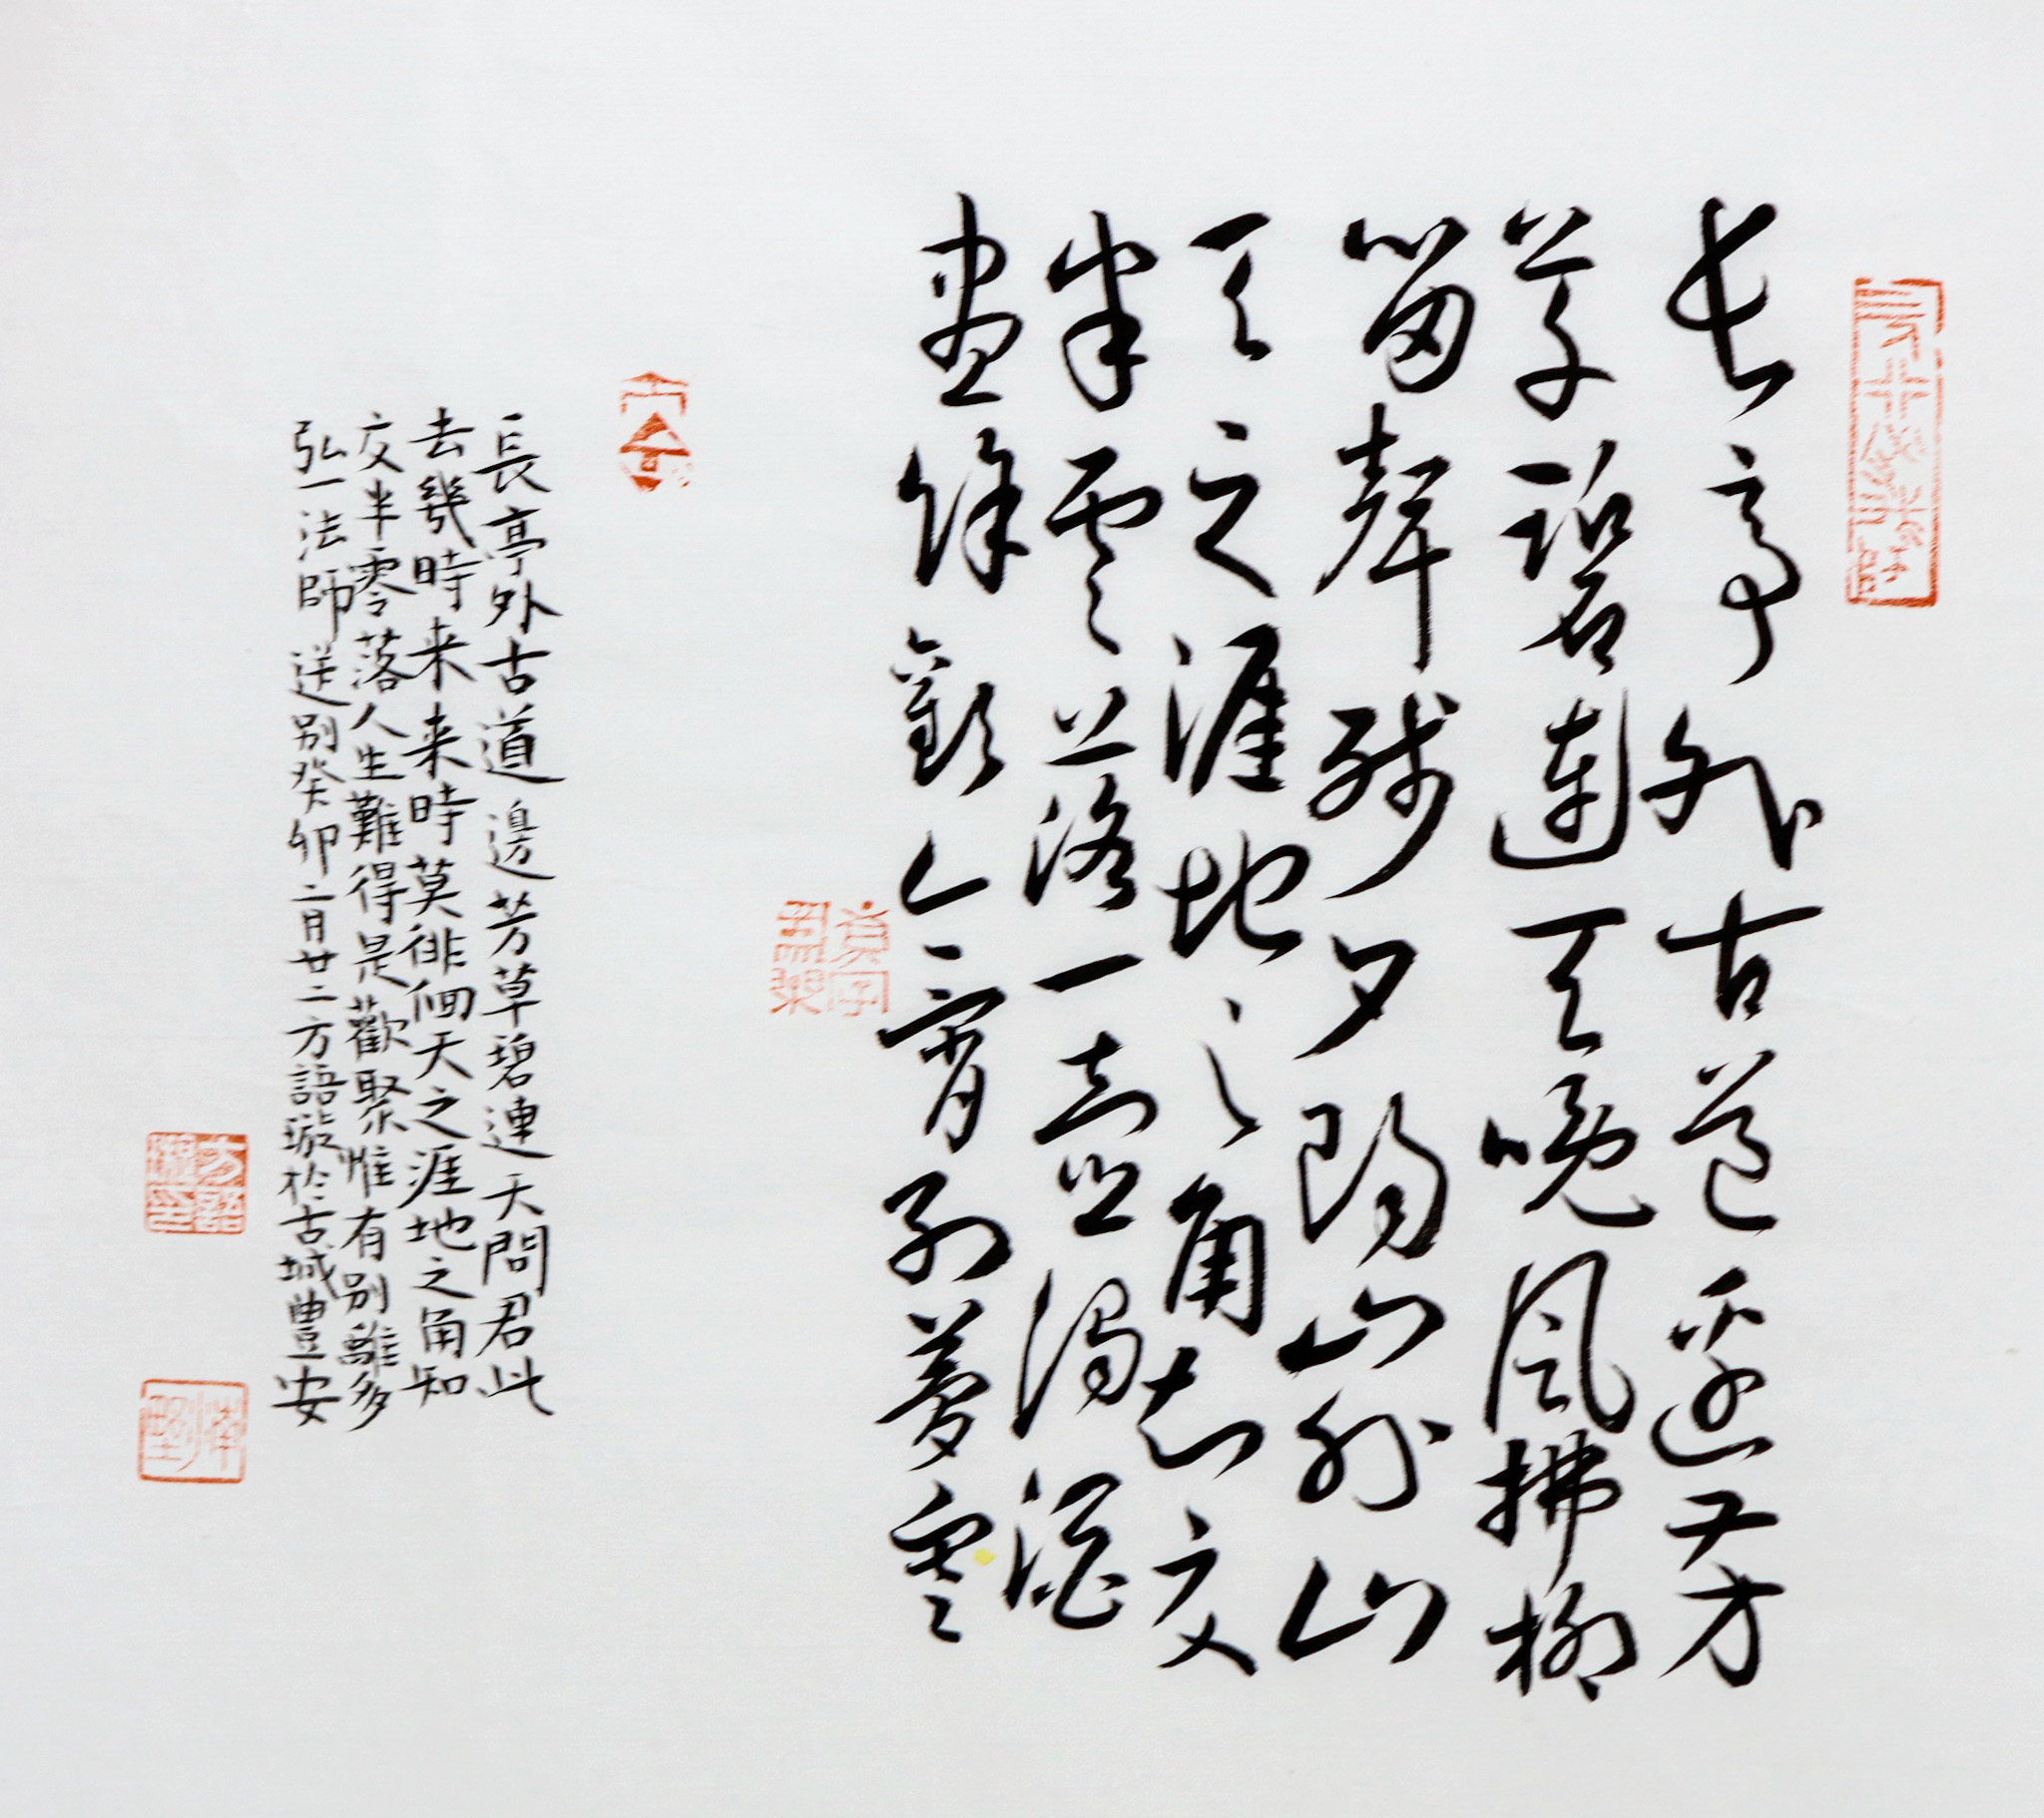 長亭外古道邊芳
草碧連天晚風拂柳
笛聲殘夕陽山外山
天之涯地之角知交
半零落一壺濁酒
盡餘歡今宵別夢寒
長亭外古道邊芳草碧連天問君此
去幾時来来時莫徘徊天之涯地之角知
友半零落人生難得是歡聚惟有別離多
弘一法師送別癸卯二月廿二方語璇於古城豊安